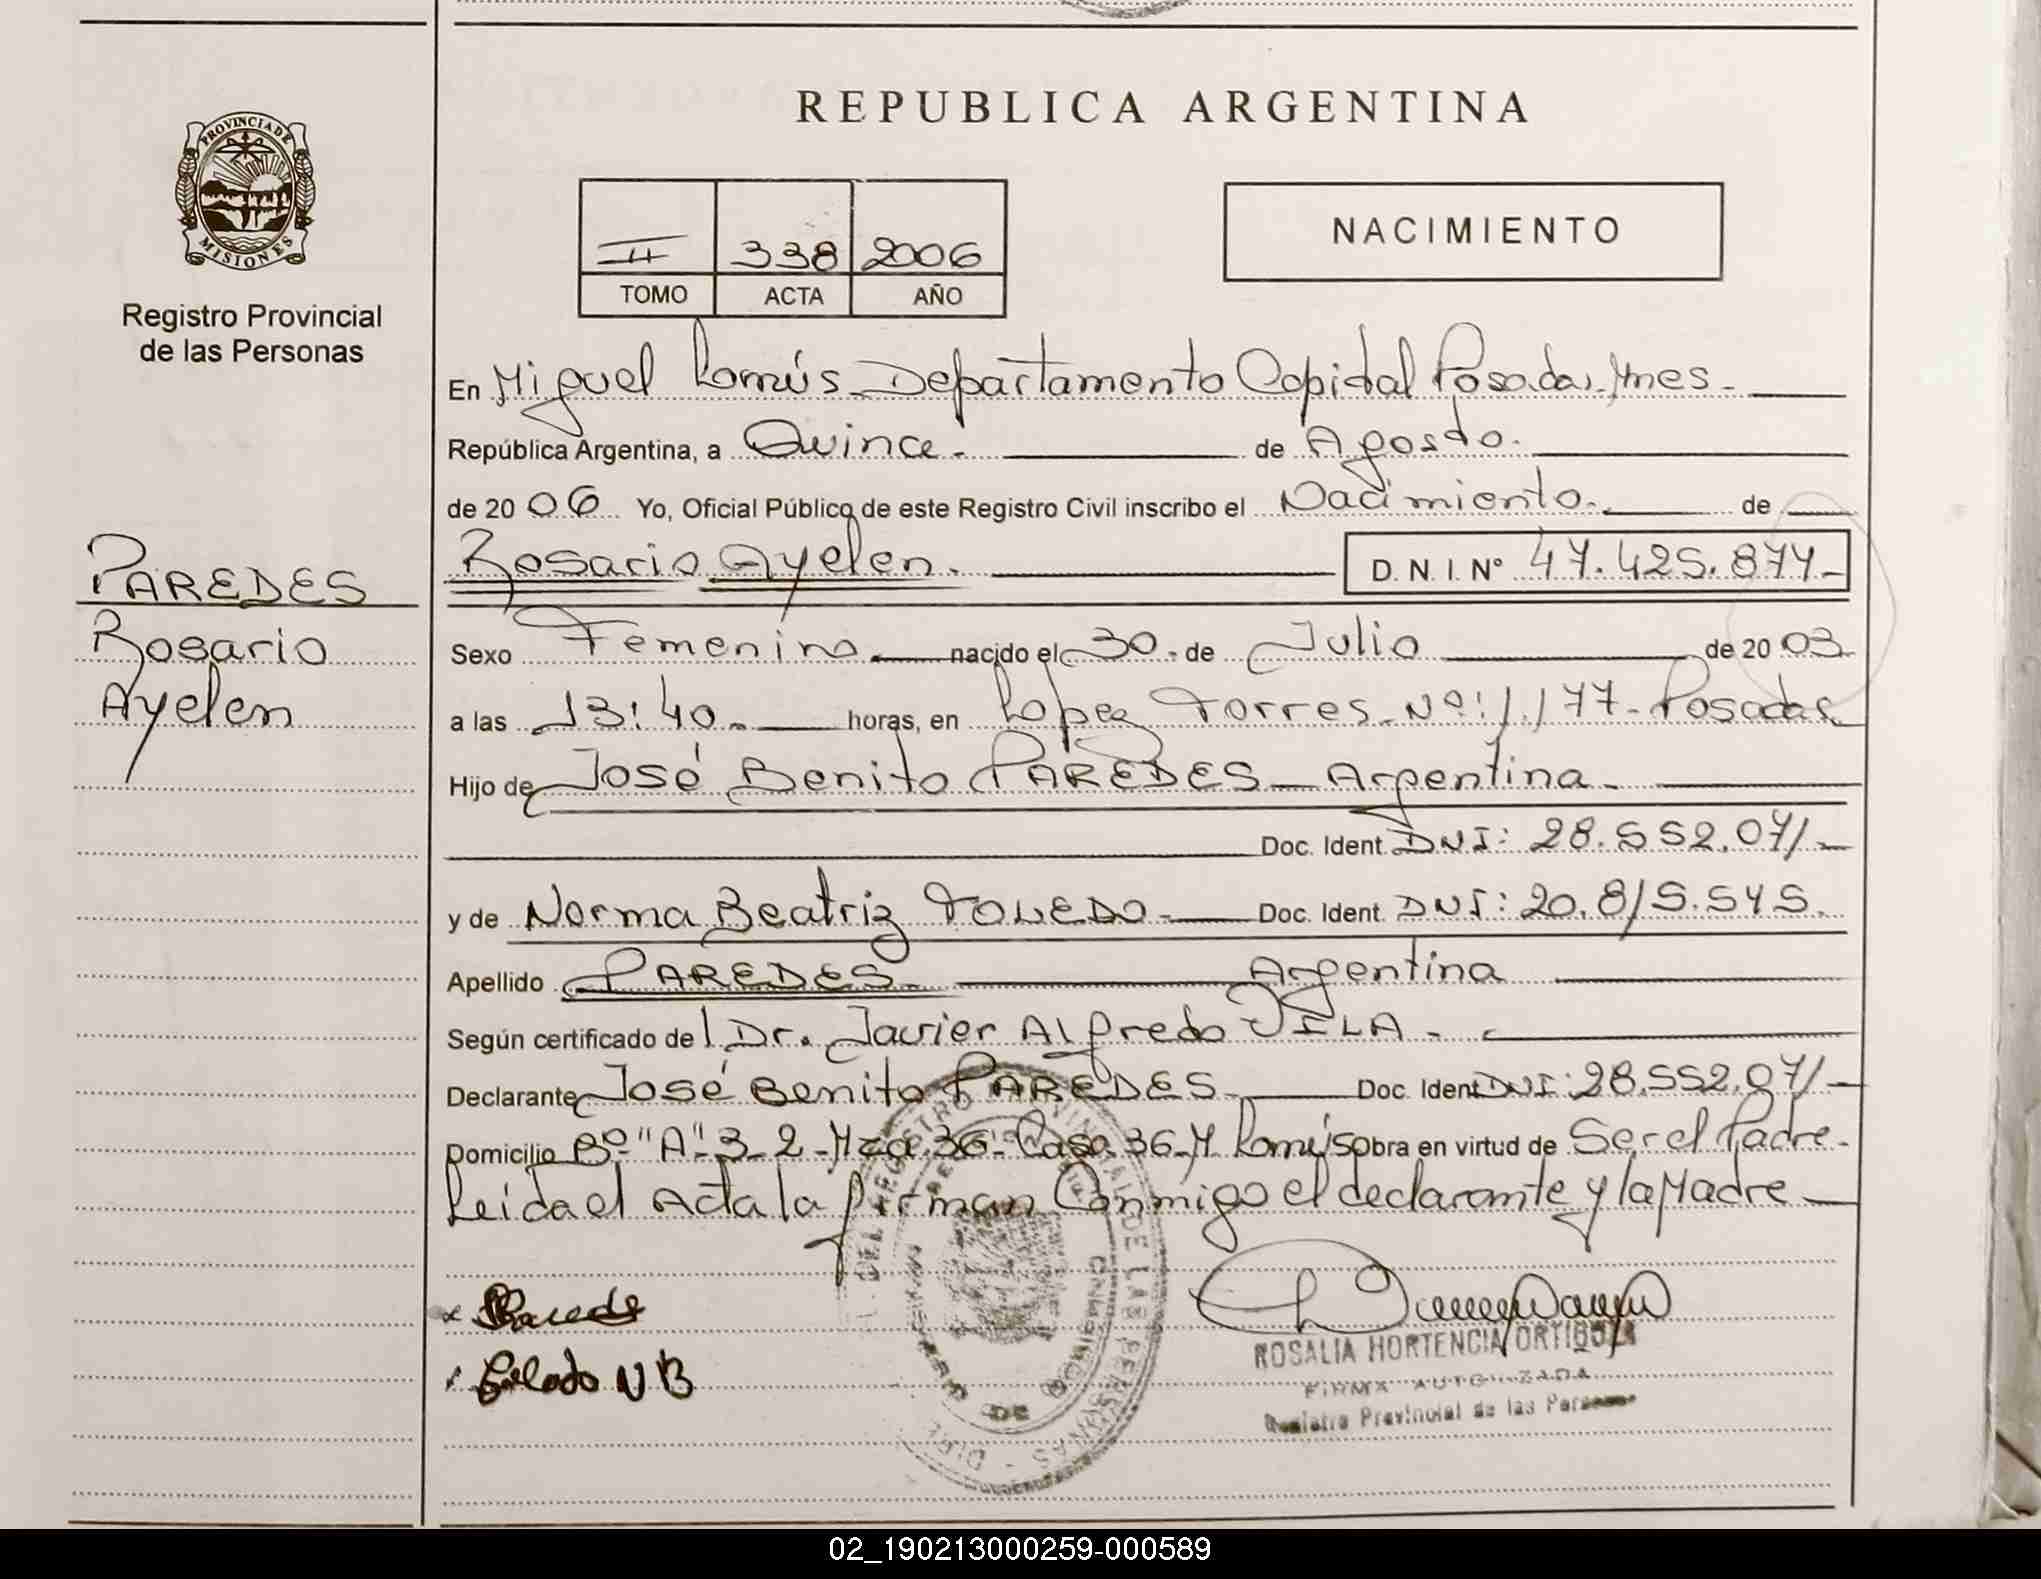 REPUBLICA ARGENTINA
PROVINCIA DE
MISIONES
Registro Provincial
de las Personas
II 338 2006
TOMO ACTA AÑO
NACIMIENTO
En Miguel Lanús - Departamento Capital Posadas, Mnes -
República Argentina, a Quince - de Agosto.
de 20 06 Yo, Oficial Público de este Registro Civil inscribo el Nacimiento. de
Rosario Ayelen. D.N.I. Nº 47.425.874-
PAREDES
Rosario
Ayelen
Sexo Femenino nacido el 30 - de Julio de 20 03
a las 13:40 horas, en Lopez Torres - Nº: 1.177 - Posadas
Hijo de José Benito PAREDES - Argentina -
Doc. Ident. DNI: 28.552.071-
y de Norma Beatriz TOLEDO - Doc. Ident. DNI: 20.815.545.
Apellido PAREDES Argentina
Según certificado del Dr. Javier Alfredo VILA -
Declarante José Benito PAREDES Doc. Ident DNI: 28.552.071-
Domicilio Bº "A" 3-2 - Mza 36 - Casa 36 - M. Lanús obra en virtud de Ser el Padre -
Leida el Acta la firman Conmigo el declarante y la Madre
Toledo NB
ROSALIA HORTENCIA ORTIGOZA
FIRMA AUTORIZADA
Registro Provincial de las Personas
02_190213000259-000589